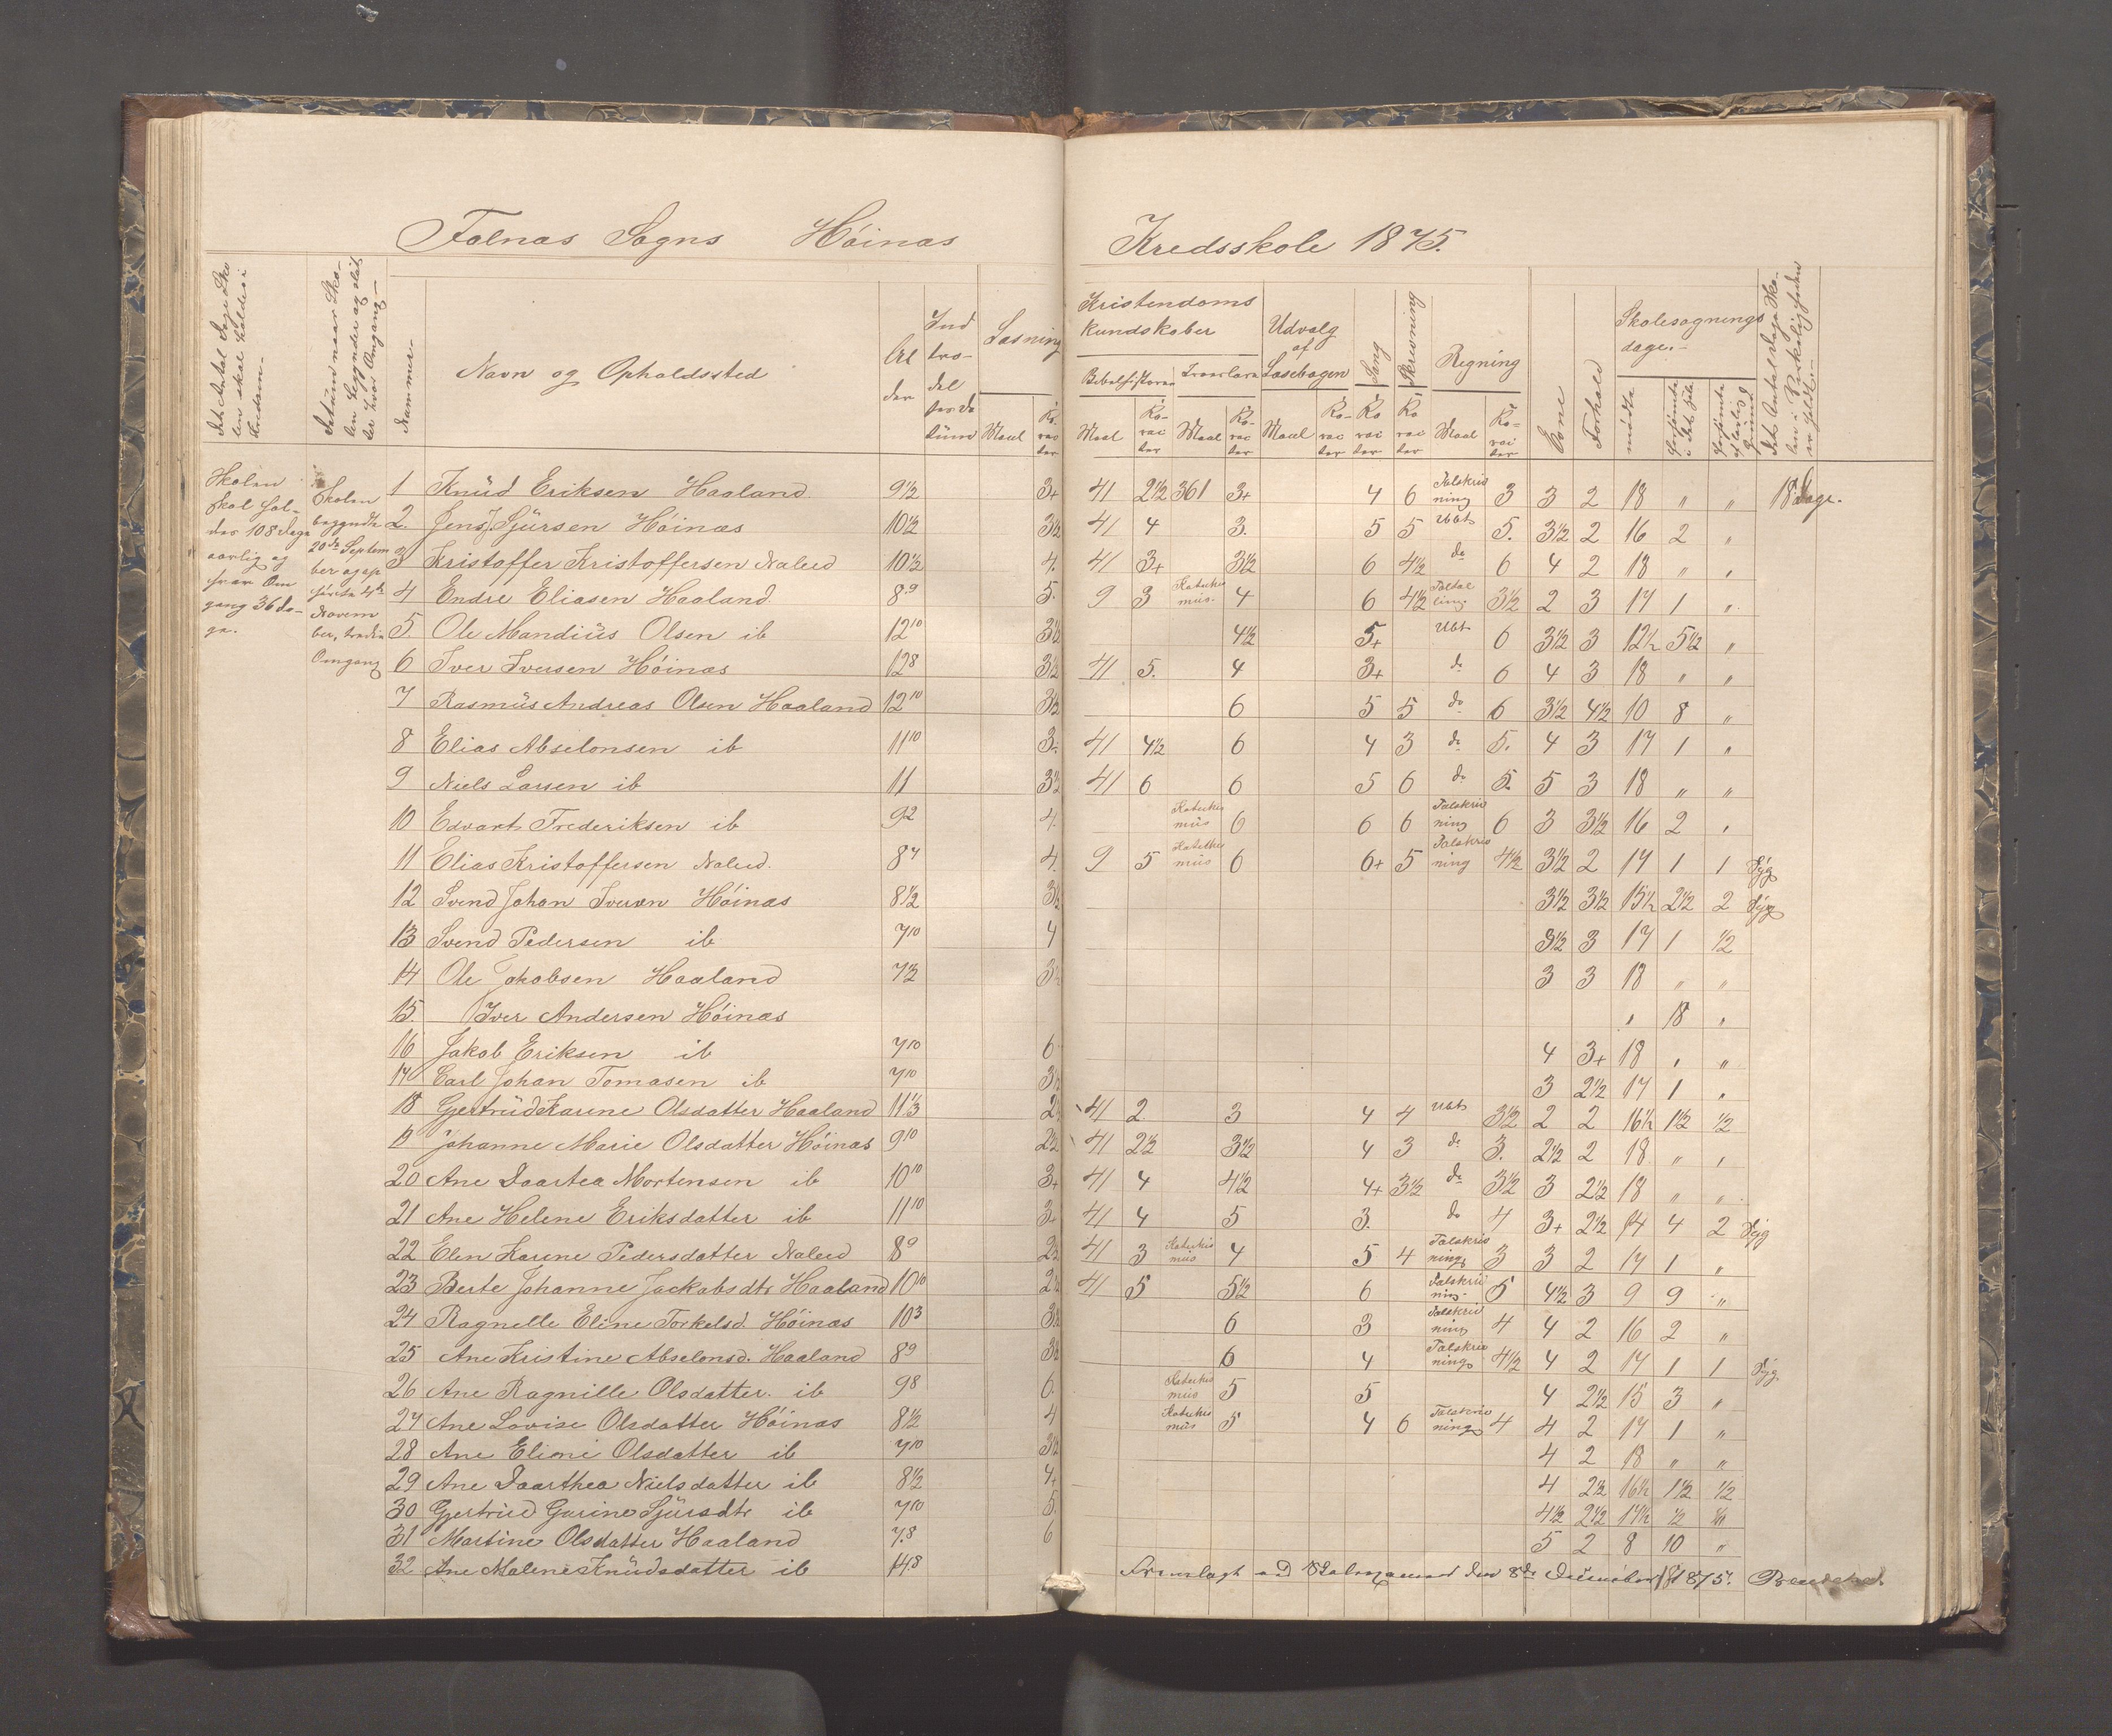 Falnæs Sogns Høinæs Kredsskole 1875.
Det Antal Dage Skolen skal holdes i Kredsen.
Datum naar Skolen begynder og slutter hver Omgang
Nummer
Navn og Opholdssted
Alder
Indtrædelsesdatum
Læsning
Kristendoms kundskaber
Udvalg af Læsebogen
Sang
Skrivning
Regning
Evne
Forhold
Skolesøgningsdage.
Bibelhistorie
Troeslære
Maal
Karacter
mødte
forsømte i det Hele
Skolen skal holdes 108 Dage aarlig og hver Omgang 36 Dage.
Skolen begyndte 20de September og opførte 4de November, tredie Omgang
1 Knud Eriksen Haaland 9½ 3+ 41 2½ 361 3+ 4 6 Talskrivning 3 3 2 18 " " 18 Dage.
2. Jens Sjursen Høinæs 10½ 3½ 41 4 3. 5 5 Ubts 5. 3½ 2 16 2 "
3 Kristoffer Kristoffersen Nalud 10½ 4. 41 3+ 3½ 6 4½ do 6 4 2 18 " "
4 Endre Eliasen Haaland 8 9 5. 9 3 Katekismus 4 6 4½ 3½ 2 3 17 1 "
5. Ole Mandius Olsen ib 12 10 3½ 4½ 5+ Ubts 6 3½ 3 12½ 5½ "
6 Iver Iversen Høinæs 12 8 3½ 41 5. 4 3+ do 6 4 3 18 " "
7 Rasmus Andreas Olsen Haaland 12 10 3½ 6 5 5 do 6 3½ 4½ 10 8 "
8 Elias Abselonsen ib 11 10 3. 41 4½ 6 4 3 do 5. 4 3 17 1 "
9 Niels Larsen ib 11 3½ 41 6 6 5 6 do 5. 5 3 18 " "
10 Edvart Frederiksen ib 9 2 4. Katekismus 6 6 6 Talskrivning 6 3 3½ 16 2 "
11 Elias Kristoffersen Nalud. 8 7 4. 9 5 Katekismus 6 6+ 5 Talskrivning 4½ 3½ 2 17 1 1 Syg
12 Svend Johan Iversen Høinæs 8½ 3½ 3½ 3½ 15½ 2½ 2 Syg
13 Svend Pedersen ib 7 10 4 3½ 3 17 1 ½
14 Ole Jakobsen Haaland 7½ 3½ 3 3 18 " "
15. Iver Andersen Høinæs " 18 "
16 Jakob Eriksen ib 7 10 6 4 3+ 18 " "
17 Carl Johan Tomasen ib 7 10 3½ 3 2½ 17 1 "
18 Gjertrud Karine Olsdatter Haaland 11⅓ 2 41 2 3 4 4 Ubts 3½ 2 2 16½ 1½ ½
19 Johanne Marie Olsdatter Høinæs 9 10 2½ 41 2½ 3½ 4 3 do 3. 2½ 2 18 " "
20 Ane Daartea Mortensen ib 10 10 3+ 41 4 4½ 4+ 3½ do 3½ 3 2½ 18 " "
21 Ane Helene Eriksdatter ib 11 10 3+ 41 4 5 3. do 4 3+ 2½ 14 4 2 Syg
22 Elen Karine Pedersdatter Nalud 8 9 2½ 41 3 Katekismus 4 5 4 Talskrivning 3 3 2 17 1 "
23 Berte Johanne Jackobsdtr Haaland 10 10 2½ 41 5 5½ 6 Talskrivning 5 4½ 3 9 9 "
24 Ragnelle Eline Torkelsd. Høinæs 10 3 3½ 6 3 Talskrivning 4 4 2 16 2 "
25 Ane Kristine Abselonsd. Haaland 8 9 3½ 6 4 Talskrivning 4½ 4 2 17 1 1 Syg.
26 Ane Ragnille Olsdatter ib 9 8 6. Katekismus 5 5 4 2½ 15 3 "
27 Ane Lovise Olsdatter Høinæs 8½ 4 Katekismus 5 4 6 Talskrivning 4 4 2 17 1 "
28 Ane Eline Olsdatter ib 7 10 3½ 4 2 18 " "
29 Ane Daarthea Nielsdatter ib 8½ 4+ 4 2½ 16½ 1½ ½
30 Gjertrud Gurine Sjursdtr ib 7 10 5. 4½ 2½ 17½ ½
31 Martine Olsdatter Haaland 7.8 6 5 2 8 10 "
32 Ane Malene Knudsdatter ib 14.8
Fremlagt ved den 8de December 1875.